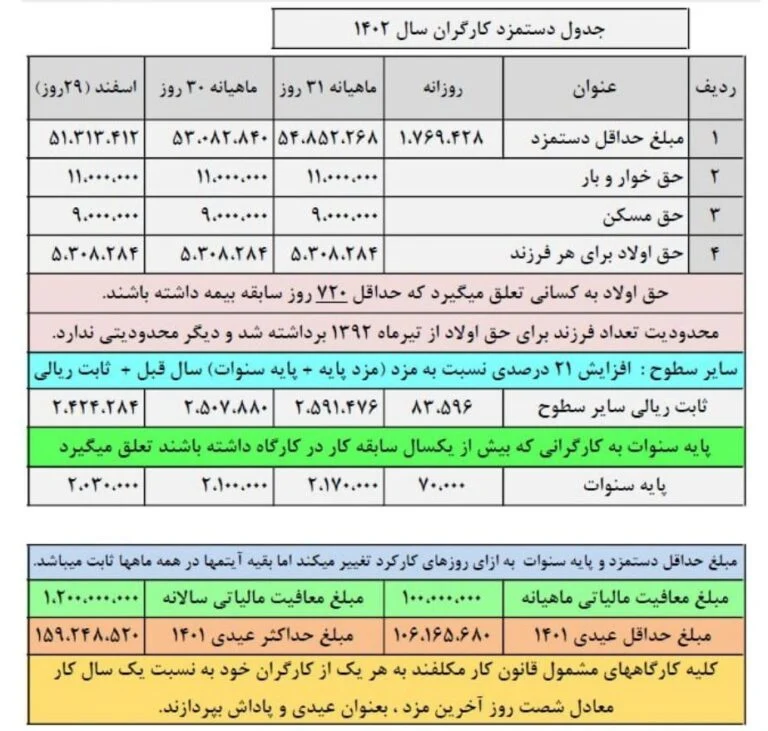 جدول دستمزد کارگران سال ۱۴۰۲
ردیف عنوان روزانه ماهیانه ۳۱ روز ماهیانه ۳۰ روز اسفند (۲۹روز)
۱ مبلغ حداقل دستمزد ۱،۷۶۹،۴۲۸ ۵۴،۸۵۲،۲۶۸ ۵۳،۰۸۲،۸۴۰ ۵۱،۳۱۳،۴۱۲
۲ حق خوار و بار ۱۱،۰۰۰،۰۰۰ ۱۱،۰۰۰،۰۰۰ ۱۱،۰۰۰،۰۰۰
۳ حق مسکن ۹،۰۰۰،۰۰۰ ۹،۰۰۰،۰۰۰ ۹،۰۰۰،۰۰۰
۴ حق اولاد برای هر فرزند ۵،۳۰۸،۲۸۴ ۵،۳۰۸،۲۸۴ ۵،۳۰۸،۲۸۴
حق اولاد به کسانی تعلق میگیرد که حداقل ۷۲۰ روز سابقه بیمه داشته باشند.
محدودیت تعداد فرزند برای حق اولاد از تیرماه ۱۳۹۲ برداشته شد و دیگر محدودیتی ندارد.
سایر سطوح : افزایش ۲۱ درصدی نسبت به مزد (مزد پایه + پایه سنوات) سال قبل + ثابت ریالی
ثابت ریالی سایر سطوح ۸۳،۵۹۶ ۲،۵۹۱،۴۷۶ ۲،۵۰۷،۸۸۰ ۲،۴۲۴،۲۸۴
پایه سنوات به کارگرانی که بیش از یکسال سابقه کار در کارگاه داشته باشند تعلق میگیرد
پایه سنوات ۷۰،۰۰۰ ۲،۱۷۰،۰۰۰ ۲،۱۰۰،۰۰۰ ۲،۰۳۰،۰۰۰
مبلغ حداقل دستمزد و پایه سنوات به ازای روزهای کارکرد تغییر میکند اما بقیه آیتمها در همه ماهها ثابت میباشد.
مبلغ معافیت مالیاتی ماهیانه ۱۰۰،۰۰۰،۰۰۰ مبلغ معافیت مالیاتی سالانه ۱،۲۰۰،۰۰۰،۰۰۰
مبلغ حداقل عیدی ۱۴۰۱ ۱۰۶،۱۶۵،۶۸۰ مبلغ حداکثر عیدی ۱۴۰۱ ۱۵۹،۲۴۸،۵۲۰
کلیه کارگاههای مشمول قانون کار مکلفند به هر یک از کارگران خود به نسبت یک سال کار
معادل شصت روز آخرین مزد ، بعنوان عیدی و پاداش بپردازند.